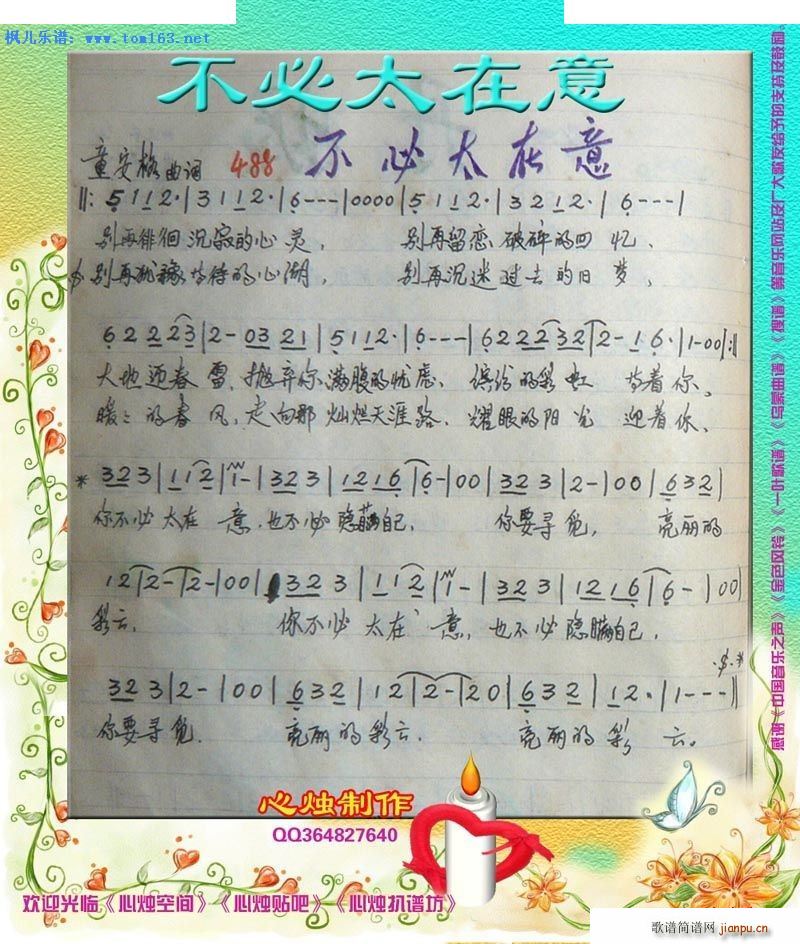 枫儿乐谱：www.tom163.net
不必太在意
童安格曲词 488 不必太在意
‖: 5 1 1 2· | 3 1 1 2· | 6 - - - | 0 0 0 0 | 5 1 1 2· | 3 2 1 2· | 6 - - - |
别再徘徊沉寂的心灵， 别再留恋破碎的回忆、
别再犹豫等待的心湖， 别再沉迷过去的旧梦，
6 2 2 2 2 3 | 2 - 0 3 2 1 | 5 1 1 2· | 6 - - - | 6 2 2 2 3 2 | 2 - 1 6· | 1 - 0 0 :‖
大地迎春雷，抛弃你满腹的忧虑、缤纷的彩虹 等着你、
暖暖的春风，走向那灿烂天涯路、耀眼的阳光 迎着你、
* 3 2 3 | 1 1 2 | 1 - | 3 2 3 | 1 2 1 6 | 6 - | 0 0 | 3 2 3 | 2 - | 0 0 | 6 3 2 |
你不必太在意，也不必隐瞒自己， 你要寻觅， 亮丽的
1 2 | 2 - | 2 - | 0 0 | 3 2 3 | 1 1 2 | 1 - | 3 2 3 | 1 2 1 6 | 6 - | 0 0 |
彩云， 你不必太在意，也不必隐瞒自己，
3 2 3 | 2 - | 0 0 | 6 3 2 | 1 2 | 2 - | 2 0 | 6 3 2 | 1 2· | 1 - - - ‖
你要寻觅 亮丽的彩云 亮丽的彩云。
心烛制作
QQ364827640
欢迎光临《心烛空间》《心烛贴吧》《心烛扒谱坊》
感谢《中国音乐之声》《金色风铃》《一叶歌谱》《乌蒙曲谱》《搜谱》等音乐网站及广大歌友给予的支持及鼓励
歌谱简谱网 jianpu.cn